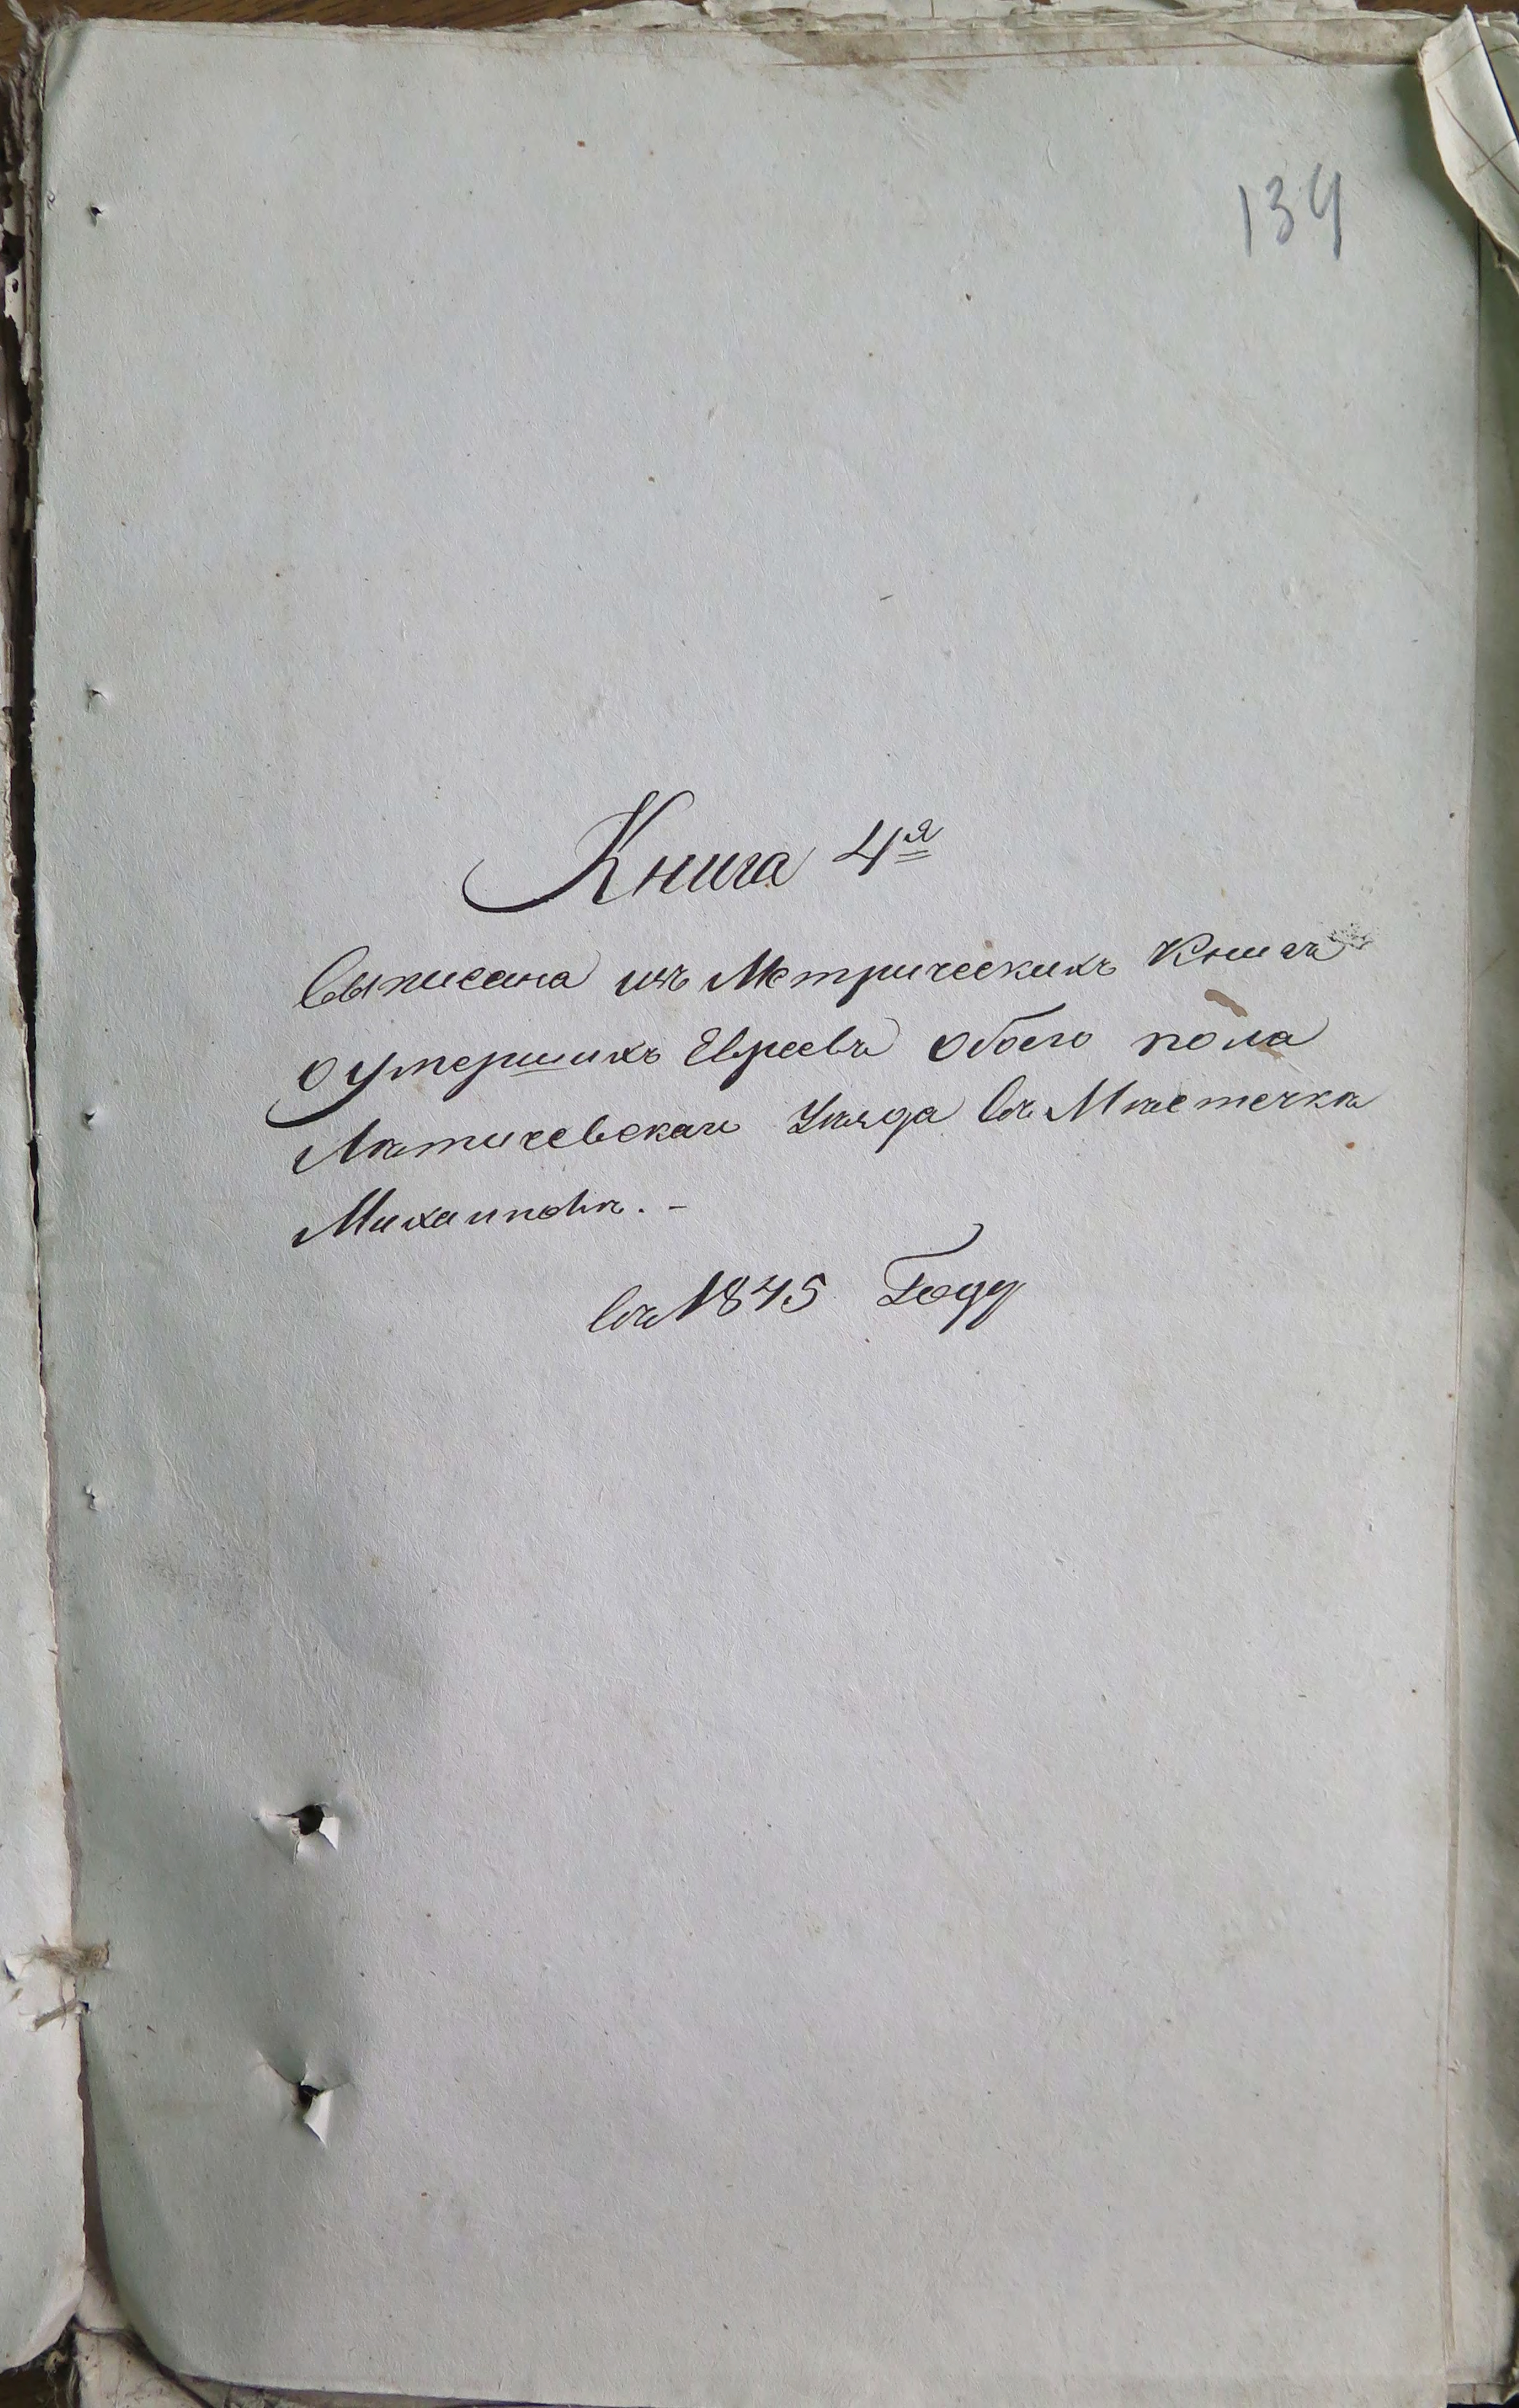 134
Книга 4я
выписана изъ Метрическихъ Книгъ
о умершихъ Евреевъ обоего пола
Лѣтичевскаго Уѣзда въ Мѣстечкѣ
Михалповѣ. -
въ 1845 Году